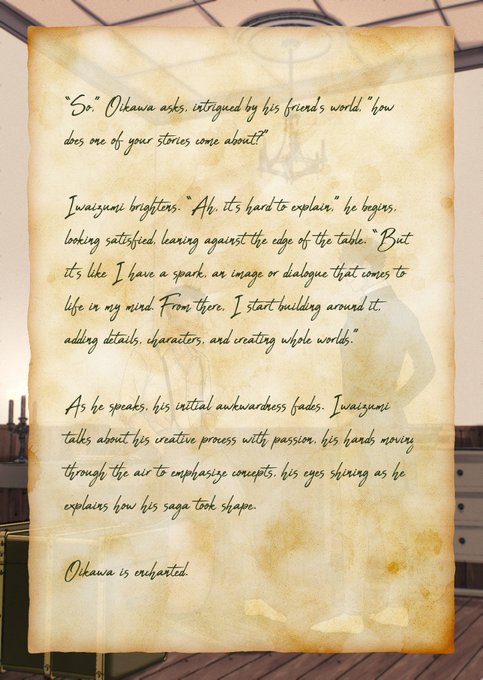 “So,” Oikawa asks, intrigued by his friend's world, “how
does one of your stories come about?”
Iwaizumi brightens. “Ah, it's hard to explain,” he begins,
looking satisfied, leaning against the edge of the table. “But
it's like I have a spark, an image or dialogue that comes to
life in my mind. From there, I start building around it,
adding details, characters, and creating whole worlds.”
As he speaks, his initial awkwardness fades. Iwaizumi
talks about his creative process with passion, his hands moving
through the air to emphasize concepts, his eyes shining as he
explains how his saga took shape.
Oikawa is enchanted.